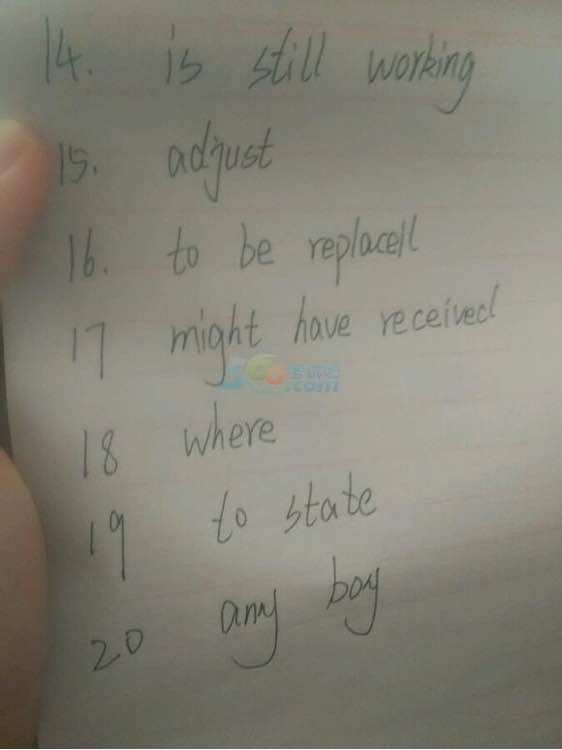 14. is still working
15. adjust
16. to be replaced
17 might have received
考试吧
.com
18 where
19 to state
20 any boy